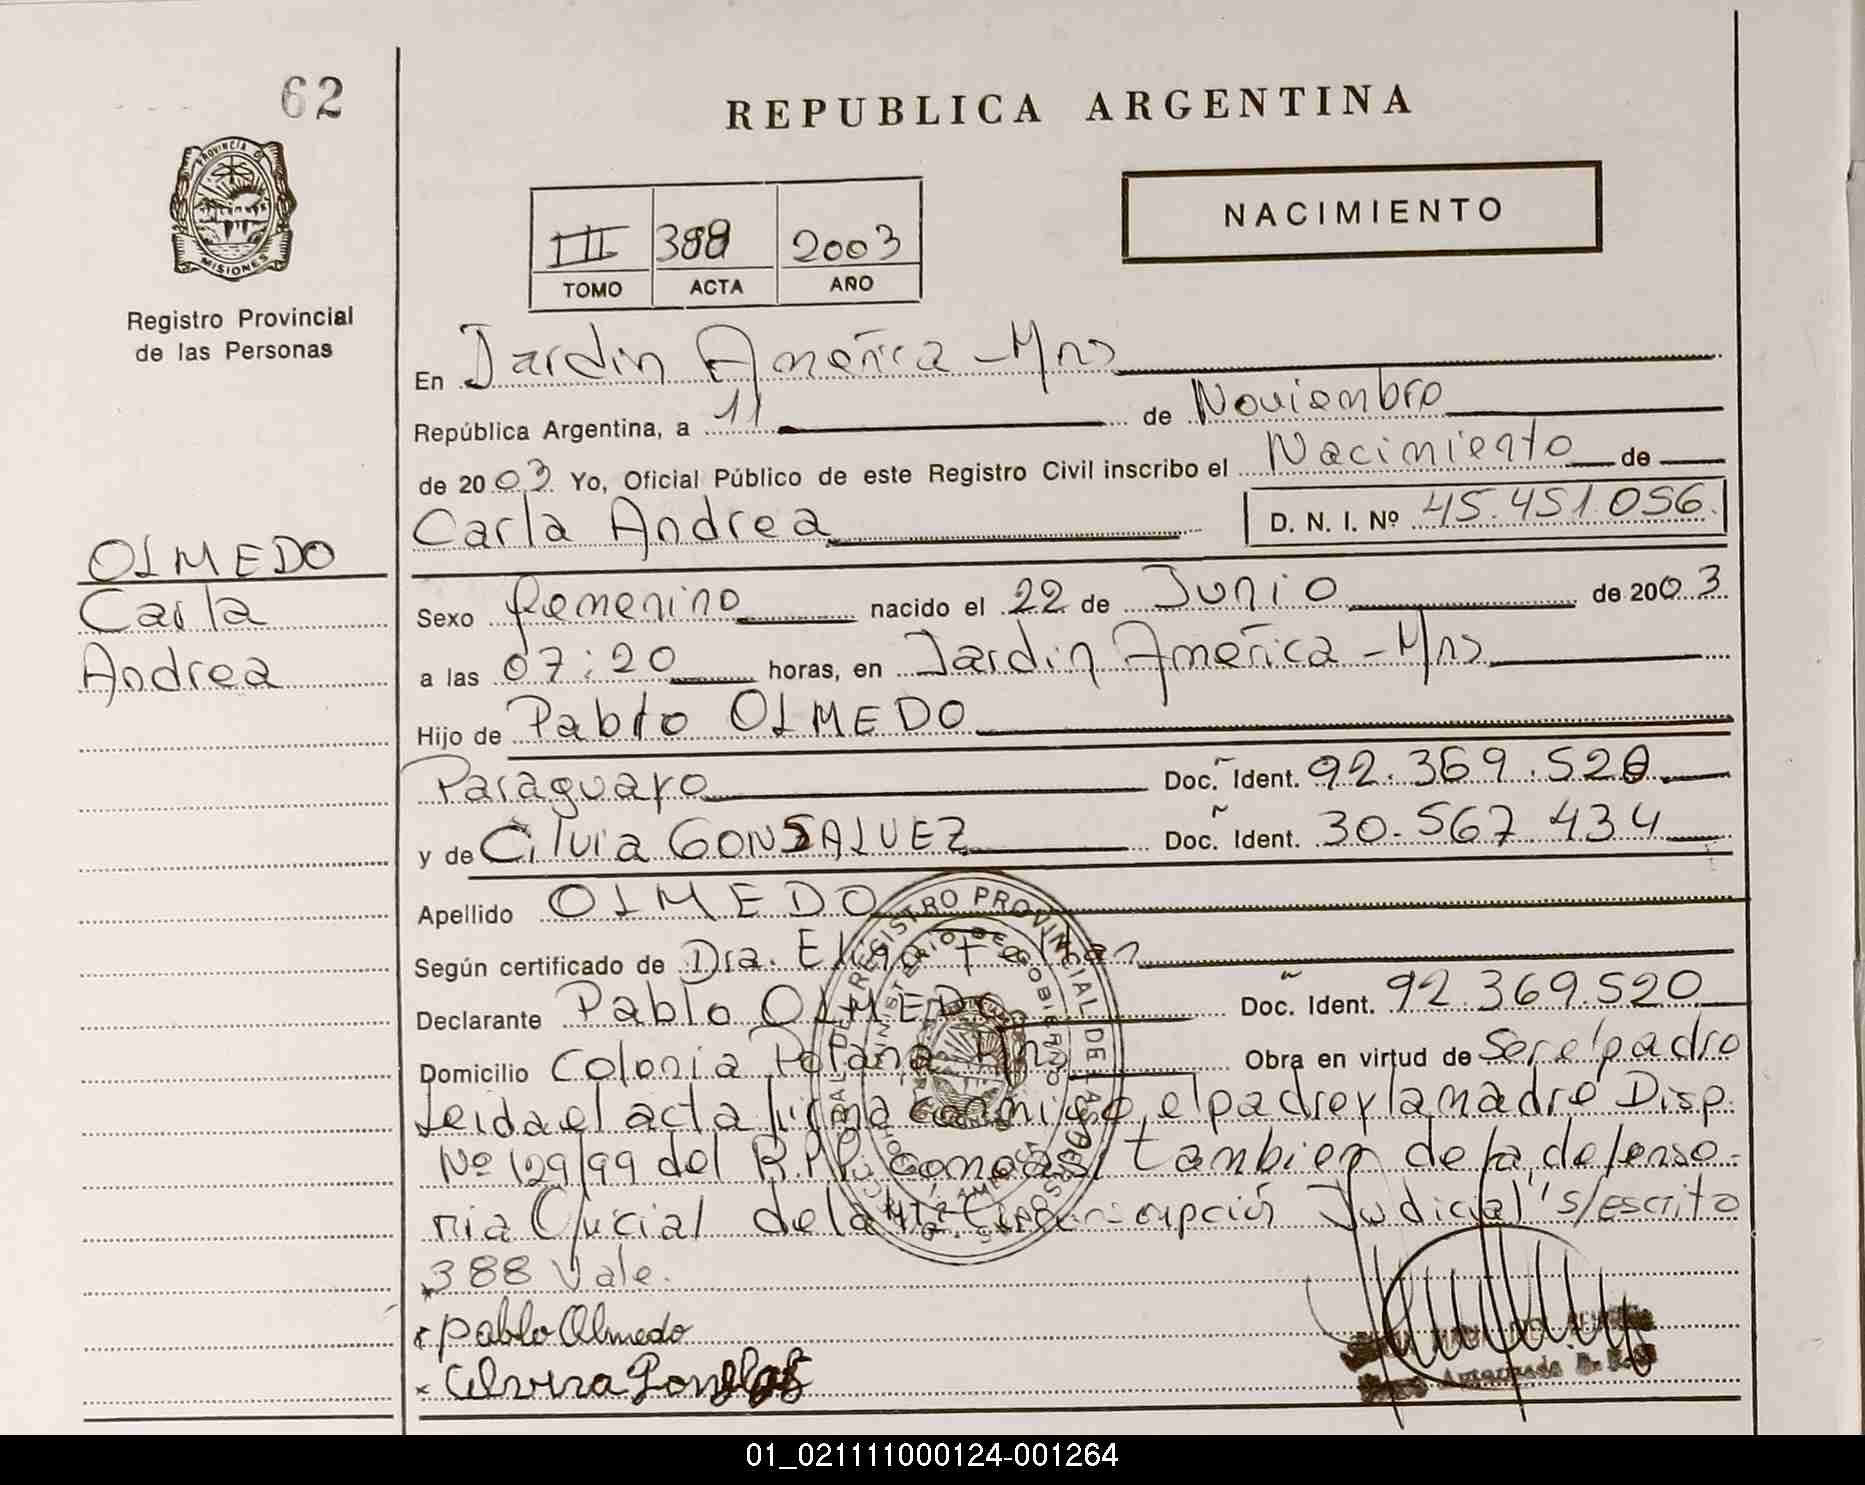 62
REPUBLICA ARGENTINA
PROVINCIA DE
MISIONES
Registro Provincial
de las Personas
III 388 2003
TOMO ACTA AÑO
NACIMIENTO
En Jardin América - Mns
República Argentina, a 11 de Noviembre
de 2003 Yo, Oficial Público de este Registro Civil inscribo el Nacimiento de
Carla Andrea D. N. I. Nº 45.451.056.
OLMEDO
Carla
Andrea
Sexo femenino nacido el 22 de Junio de 2003
a las 07:20 horas, en Jardin América - Mns
Hijo de Pablo OLMEDO
Paraguayo Doc. Ident. 92.369.520
y de Cilvia GONSALVEZ Doc. Ident. 30.567.434
Apellido OLMEDO
Según certificado de Dra.
Declarante Pablo OLMEDO Doc. Ident. 92.369.520
Domicilio Colonia Polana Mns Obra en virtud de Ser el padre
Leida el acta firma conmigo el padre y la madre Disp.
Nº 129/99 del R.P.P. como asi tambien de la defenso-
ria Oficial de la Circunscripción Judicial "s/escrito
388 Vale.
x Pablo Olmedo
x
REGISTRO PROVINCIAL DE LAS PERSONAS
MINISTERIO DE GOBIERNO
Autorizada
01_021111000124-001264